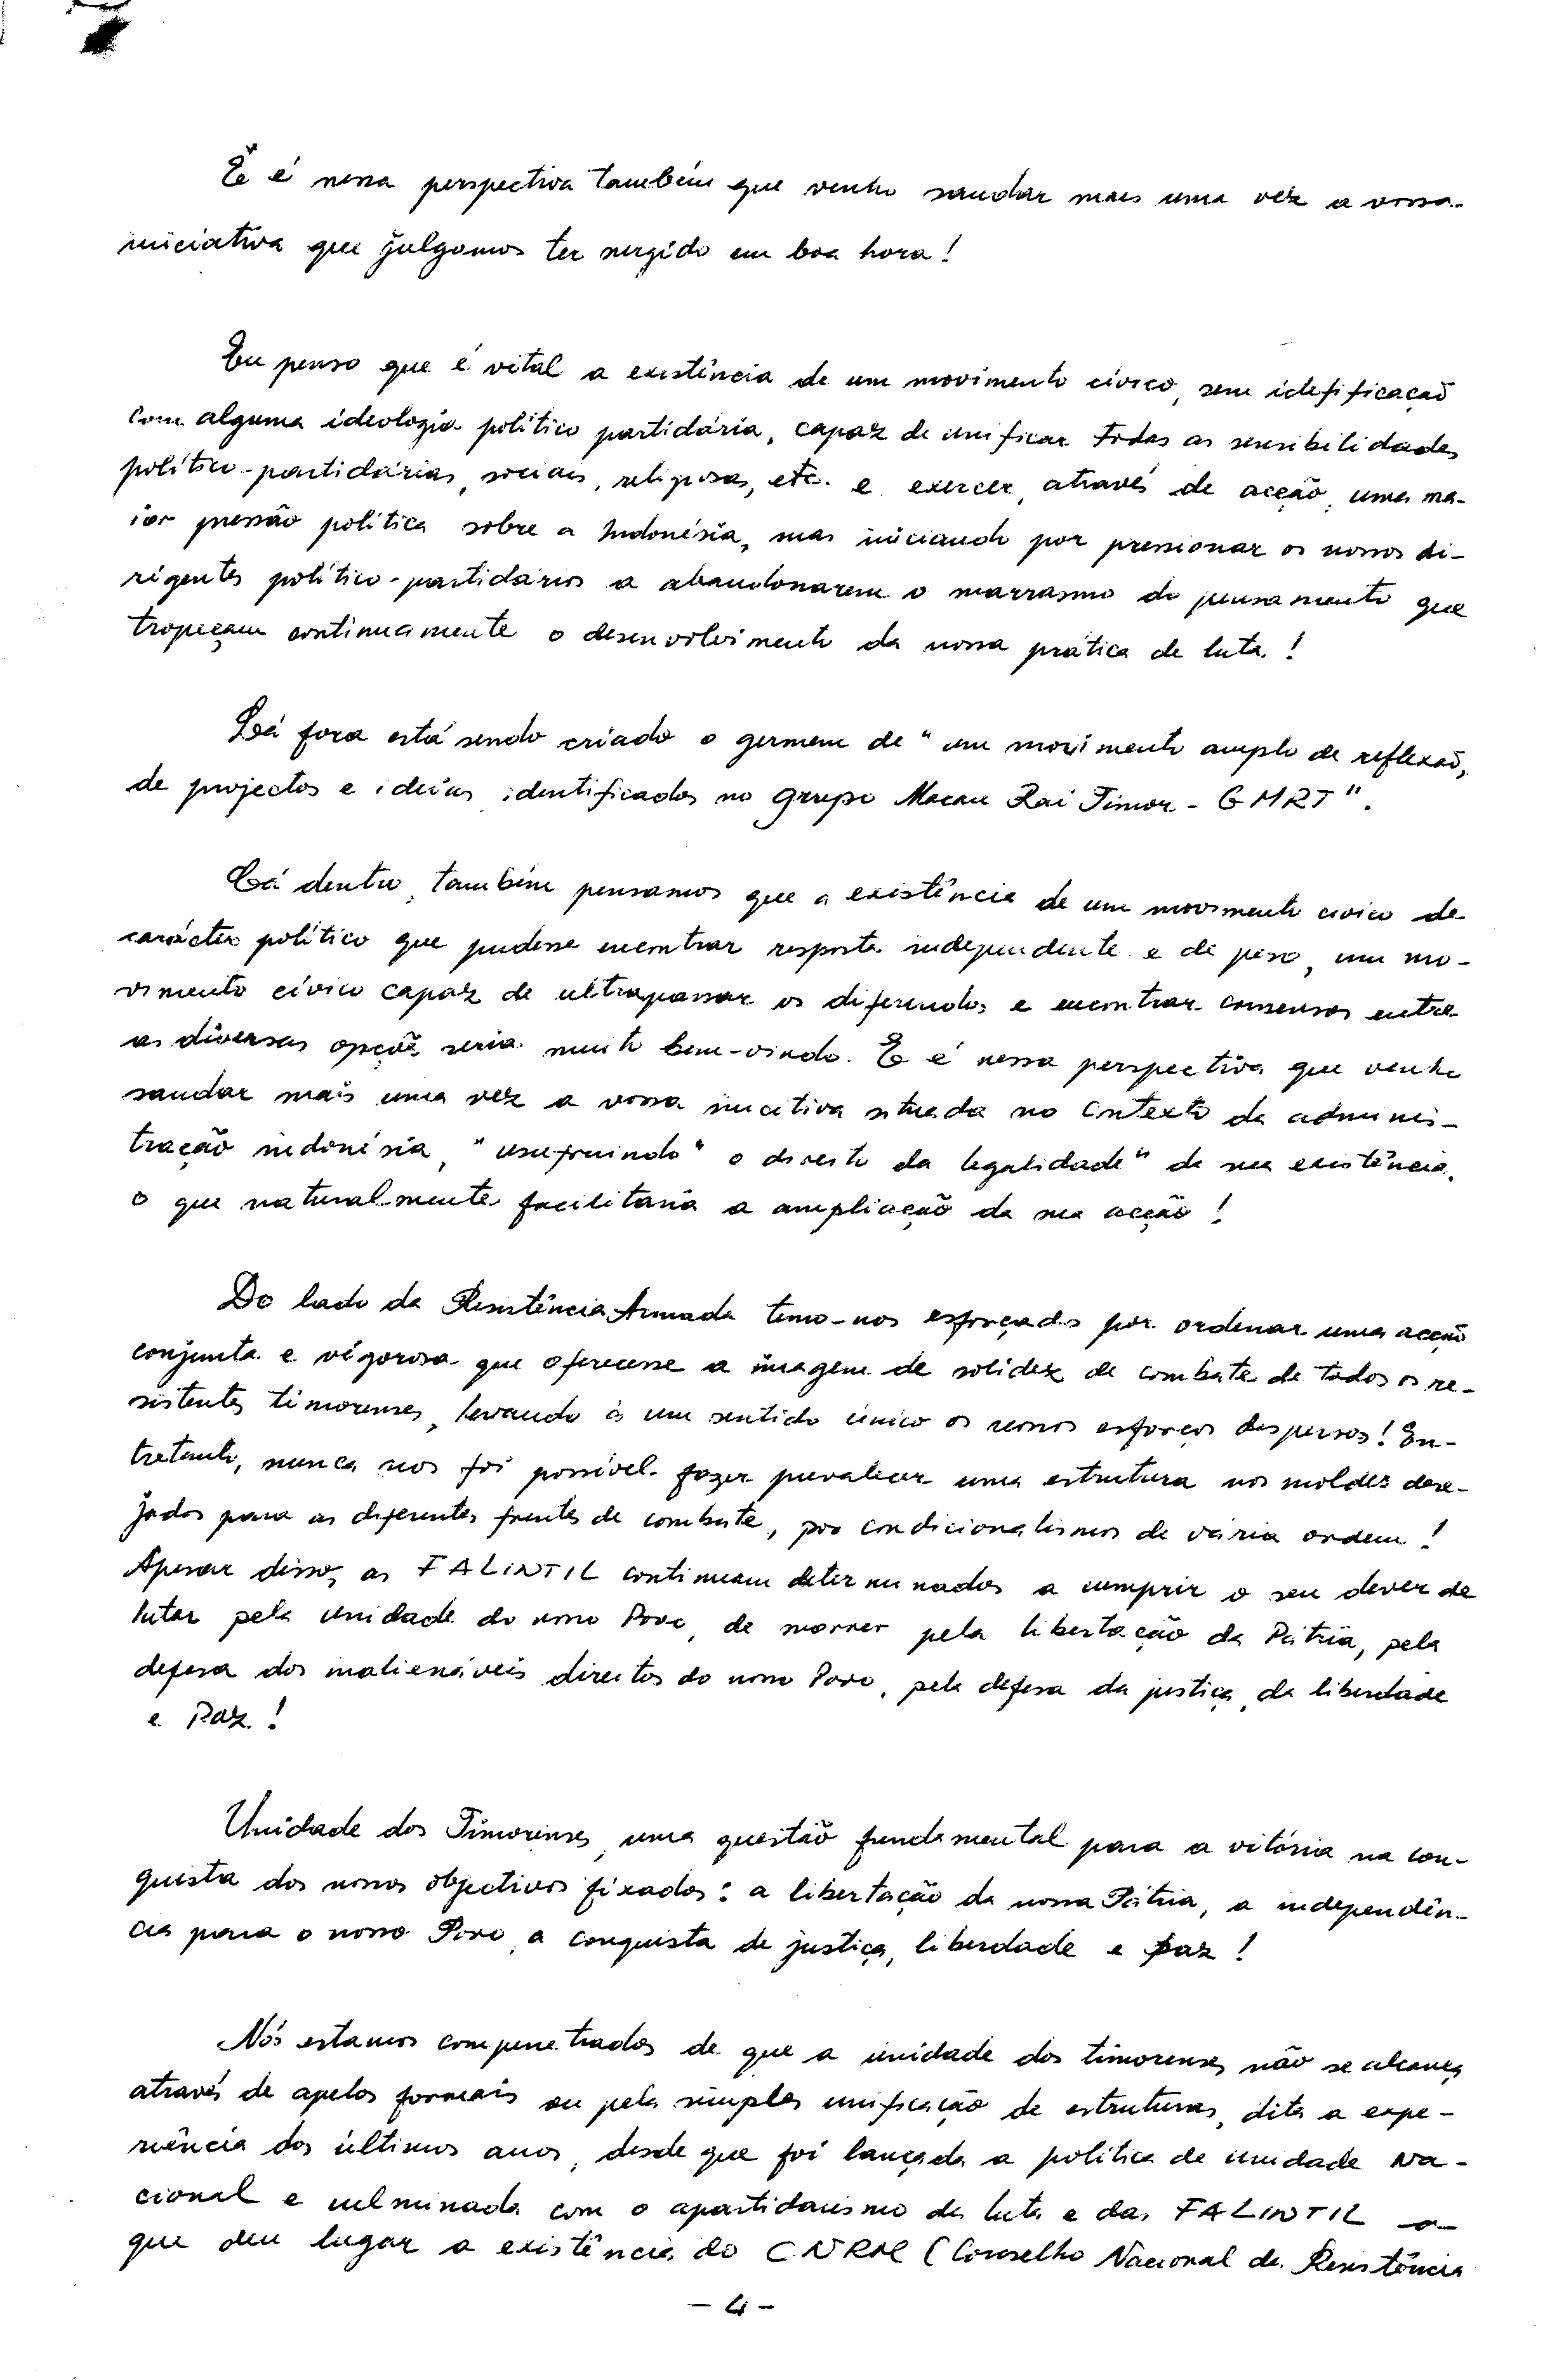 E é nessa perspectiva também que venho saudar mais uma vez a vossa
iniciativa que julgamos ter surgido em boa hora!
Eu penso que é vital a existência de um movimento cívico, sem idefificação
com alguma ideologia político partidária, capaz de unificar todas as sensibilidades
político-partidárias, sociais, religiosas, etc. e exercer, através de acção, uma ma-
ior pressão política sobre a Indonésia, mas iniciando por pressionar os nossos di-
rigentes político-partidários a abandonarem o marrasmo do pensamento que
tropeçam continuamente o desenvolvimento da nossa prática de luta!
Lá fora está sendo criado o germem de "um movimento amplo de reflexão,
de projectos e ideias identificados no grupo Macau Rai Timor - GMRT".
Cá dentro, também pensamos que a existência de um movimento cívico de
carácter político que pudesse encontrar resposta independente e de peso, um mo-
vimento cívico capaz de ultrapassar os diferendos e encontrar consensos entre
as diversas opções seria muito bem-vindo. E é nessa perspectiva que venho
saudar mais uma vez a vossa inicitiva situada no contexto da adminis-
tração indonésia, "usufruindo" o direito da legalidade" de sua existência,
o que naturalmente facilitaria a ampliação da sua acção!
Do lado da Resistência Armada temo-nos esforçado por ordenar uma acção
conjunta e vigorosa que oferecesse a imagem de solidez de combate de todos os re-
sistentes timorenses, levando à um sentido único os nossos esforços dispersos! En-
tretanto, nunca nos foi possível fazer prevalecer uma estrutura nos moldes dese-
jados para as diferentes frentes de combate, por condicionalismos de vária ordem!
Apesar disso, as FALINTIL continuam determinados a cumprir o seu dever de
lutar pela unidade do nosso Povo, de morrer pela libertação da Pátria, pela
defesa dos inalienáveis direitos do nosso Povo, pela defesa da justiça, da liberdade
e Paz!
Unidade dos Timorenses, uma questão fundamental para a vitória na con-
quista dos nossos objectivos fixados: a libertação da nossa Pátria, a independên-
cia para o nosso Povo, a conquista de justiça, liberdade e paz!
Nós estamos compenetrados de que a unidade dos timorenses não se alcança
através de apelos formais ou pela simples unificação de estruturas, dita a expe-
riência dos últimos anos, desde que foi lançada a política de unidade Na-
cional e culminada com o apartidarismo da luta e das FALINTIL o
que deu lugar a existência do CNRM (Conselho Nacional da Resistência
- 4 -